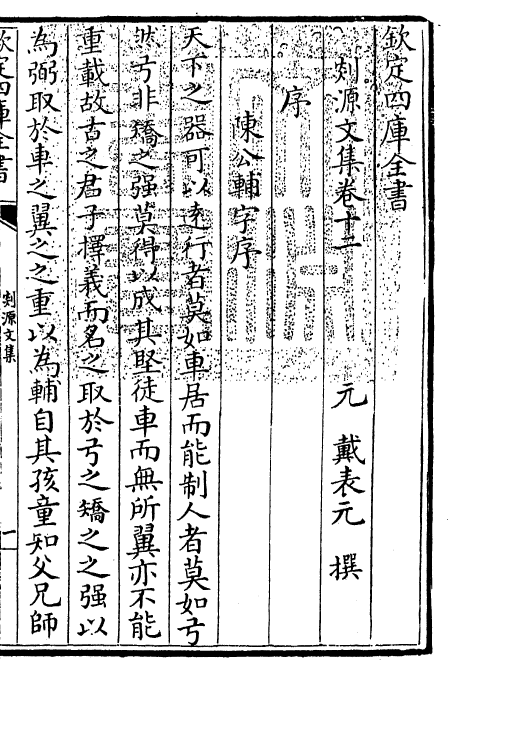 欽定四庫全書
剡源文集卷十二
元　戴表元　撰
序
陳公輔字序
天下之器可以逺行者莫如車居而能制人者莫如弓
然弓非矯之强莫得以成其堅徒車而無所翼亦不能
重載故古之君子擇義而名之取於弓之矯之之强以
為弼取於車之翼之之重以為輔自其孩童知父兄師
欽定四庫全書
剡源文集
一